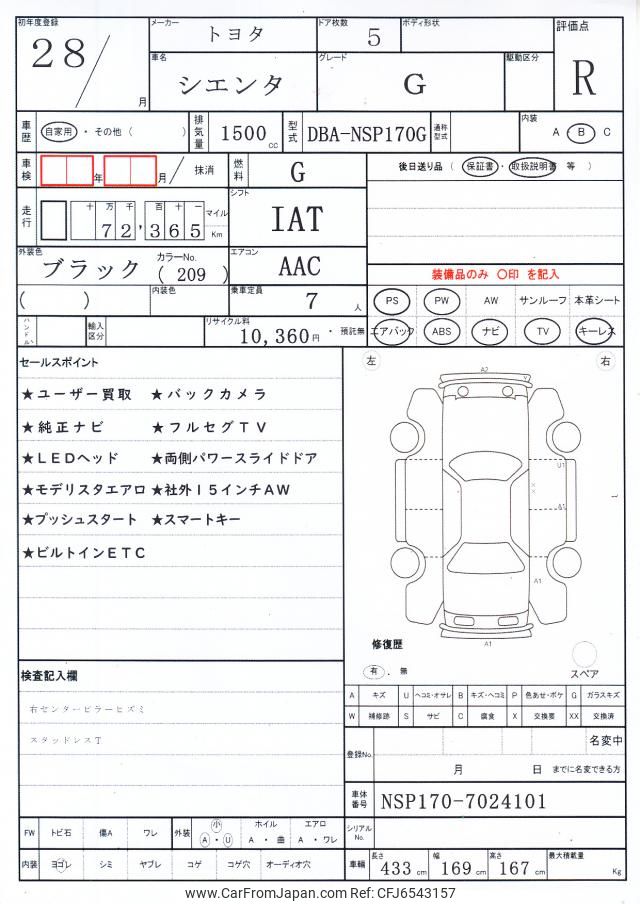 初年度登録 メーカー ドア枚数 ボディ形状 評価点
28/ 月 トヨタ 5 R
車名 グレード 駆動区分
シエンタ G
車歴 自家用 ・ その他 ( ) 排気量 1500 cc 型式 DBA-NSP170G 通称型式 内装 A ・ B C
車検 年 月 / 抹消 燃料 G 後日送り品 ( 保証書 ・ 取扱説明書 等 )
走行 十 万 千 百 十 一 マイル Km シフト
72,365 IAT
外装色 カラーNo. エアコン
ブラック ( 209 ) AAC 装備品のみ 〇印 を記入
( ) 内装色 乗車定員 7 人 PS PW AW サンルーフ 本革シート
ハンドル 輸入区分 リサイクル料 10,360 円 ・ 預託無 エアバック ABS ナビ TV キーレス
セールスポイント 左 右
★ユーザー買取 ★バックカメラ
★純正ナビ ★フルセグTV
★LEDヘッド ★両側パワースライドドア
★モデリスタエアロ ★社外15インチAW
★プッシュスタート ★スマートキー
★ビルトインETC
A2
U1
A1
A1
A1
修復歴
有 . 無 スペア
検査記入欄
右センターピラーヒズミ
スタッドレスT
A キズ U ヘコミ・オサレ B キズ・ヘコミ P 色あせ・ボケ G ガラスキズ
W 補修跡 S サビ C 腐食 X 交換要 XX 交換済
登録No. 名変中
月 日 までに名変できる方
車体番号 NSP170-7024101
FW トビ石 傷A ワレ 外装 小 A ・ U ホイル A ・ 曲 エアロ A ・ ワレ シリアルNo.
内装 ヨゴレ シミ ヤブレ コゲ コゲ穴 オーディオ穴 車輛 長さ 433 cm 幅 169 cm 高さ 167 cm 最大積載量 Kg
www.CarFromJapan.com Ref: CFJ6543157